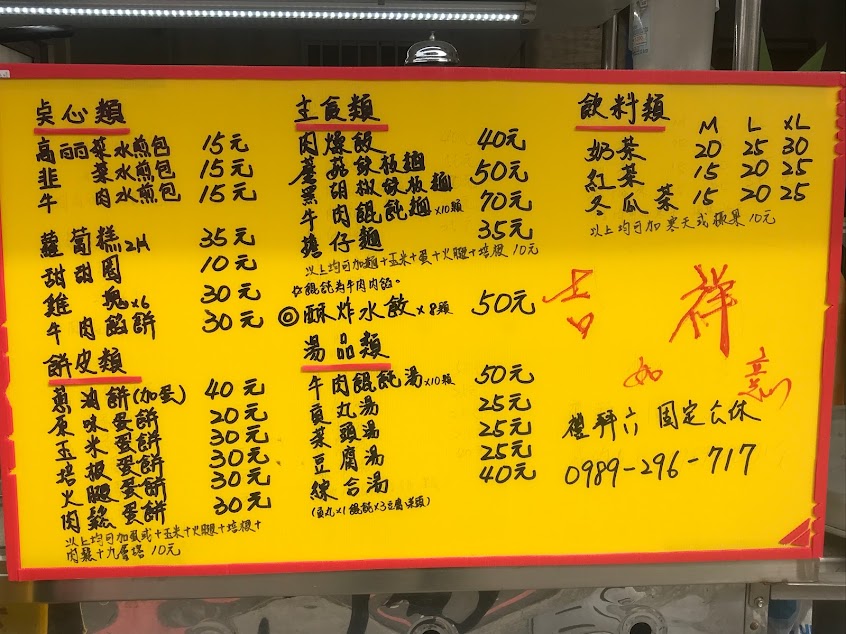 点心類
高麗菜水煎包 15元
韭菜水煎包 15元
牛肉水煎包 15元
蘿蔔糕2片 35元
甜甜圈 10元
雞塊x6 30元
牛肉餡餅 30元
餅皮類
蔥油餅(加蛋) 40元
原味蛋餅 20元
玉米蛋餅 30元
培根蛋餅 30元
火腿蛋餅 30元
肉鬆蛋餅 30元
以上均可加蛋或+玉米+火腿+培根+
肉鬆+九層塔 10元
主食類
肉燥飯 40元
蘑菇鉄板麵 50元
黑胡椒鉄板麵
牛肉餛飩麵x10顆 70元
擔仔麵 35元
以上均可加麵+玉米+蛋+火腿+培根 10元
餛飩為牛肉肉餡。
◎酥炸水餃x8顆 50元
湯品類
牛肉餛飩湯x10顆 50元
貢丸湯 25元
菜頭湯 25元
豆腐湯 25元
綜合湯 40元
(貢丸x1餛飩x3豆腐菜頭)
飲料類
M L XL
奶茶 20 25 30
紅茶 15 20 25
冬瓜茶 15 20 25
以上均可加寒天或椰果 10元
吉祥
如意
禮拜六固定公休
0989-296-717